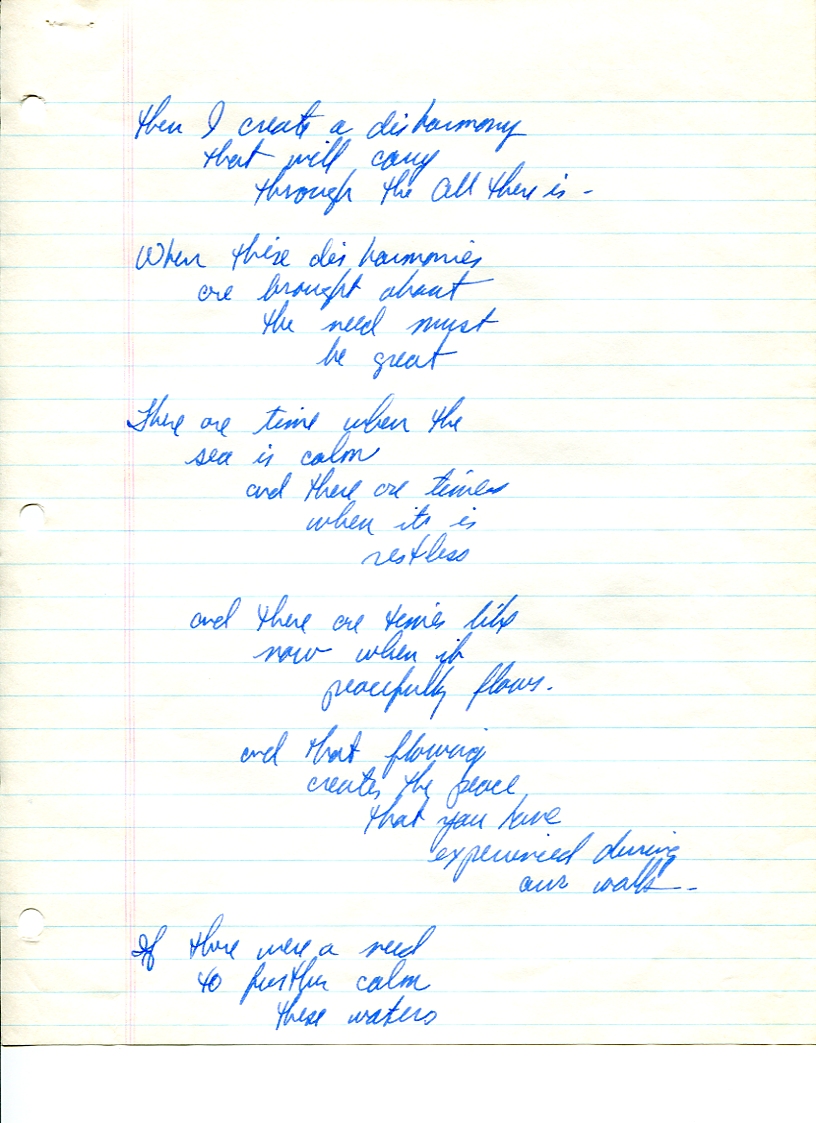 then I create a disharmony
that will carry
through the all there is -
When these dis harmonies
are brought about
the need must
be great
There are time when the
sea is calm
and there are times
when its is
restless
and there are times like
now when it
peacefully flows.
and that flowing
creates the peace
that you have
experienced during
our walk -
If there were a need
to further calm
these waters